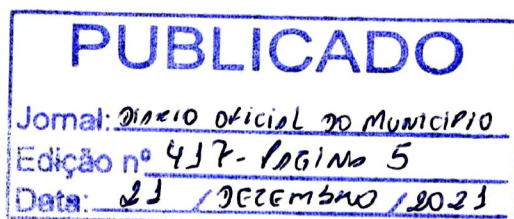 PUBLICADO
Jornal: DIARIO OFICIAL DO MUNICIPIO
Edição nº 417 - PAGINA 5
Data: 21 / DEZEMBRO / 2021